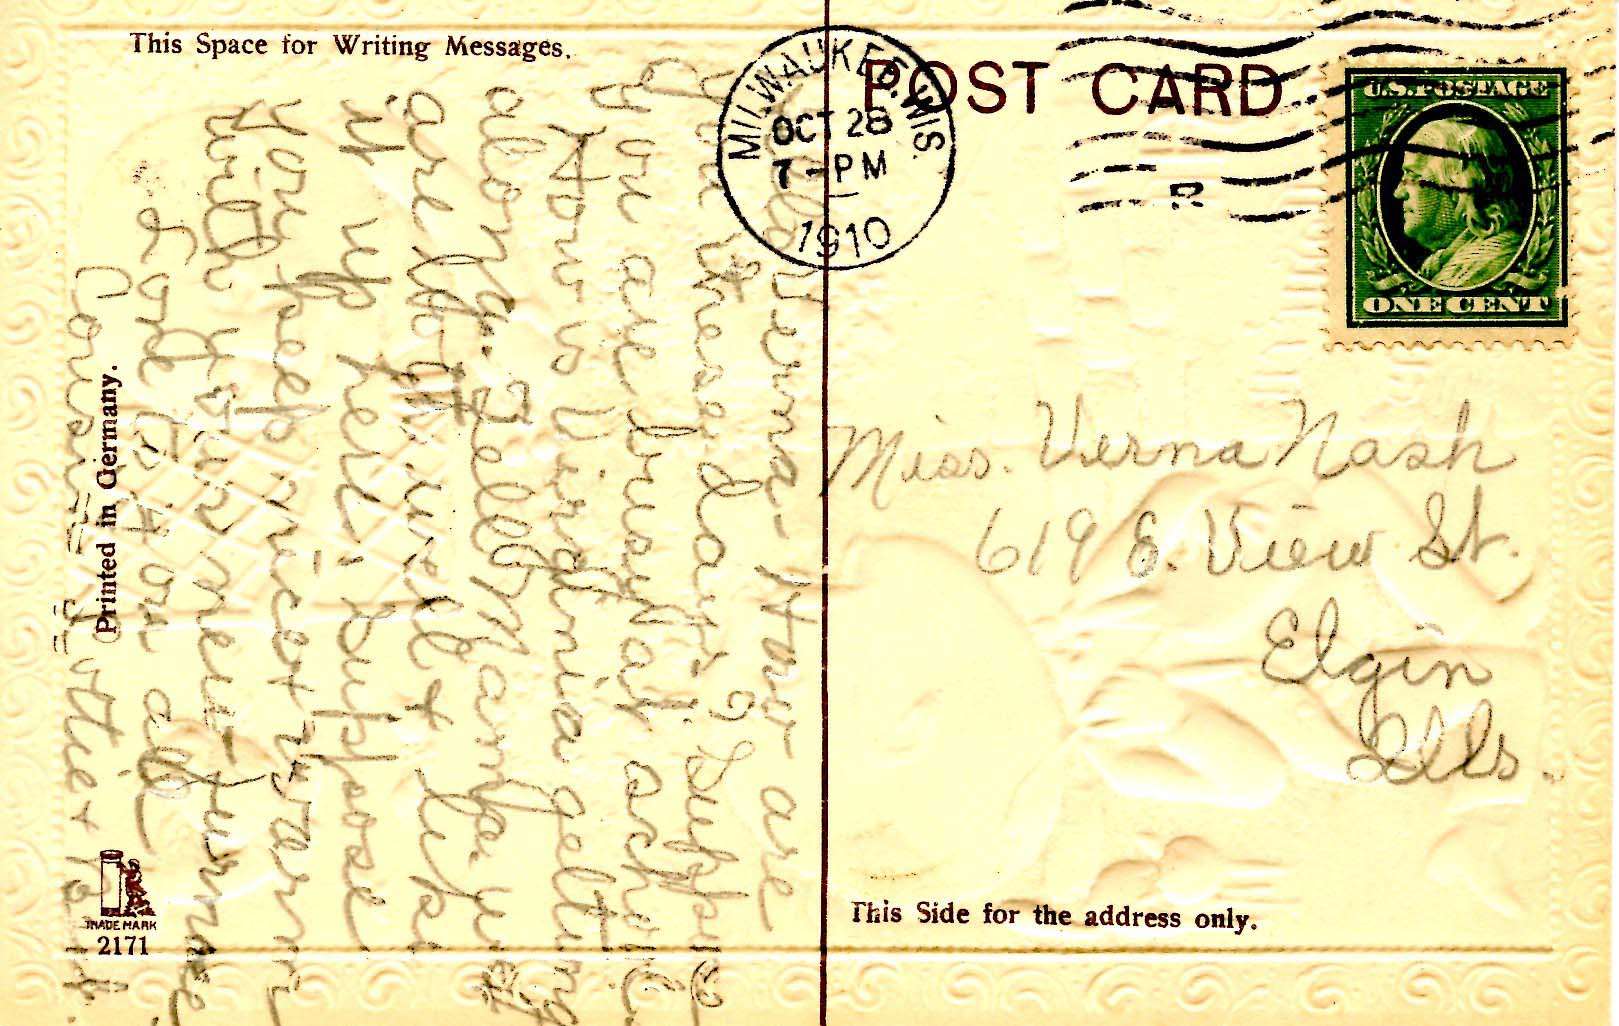 This Space for Writing Messages.
POST CARD
MILWAUKEE, WIS.
OCT 28
7 - PM
1910
U.S. POSTAGE
ONE CENT
Verna - How are
you these days? Suppose
you are busy at school.
Now is Virginia getting
along. Tell Mamma we
are both well & let's
it up here. Suppose
you keep nice & warm
with your new furnace
Love to you all
Cousin
Miss. Verna Nash
619 E. View St.
Elgin
Ills.
Printed in Germany.
TRADE MARK
2171
This Side for the address only.